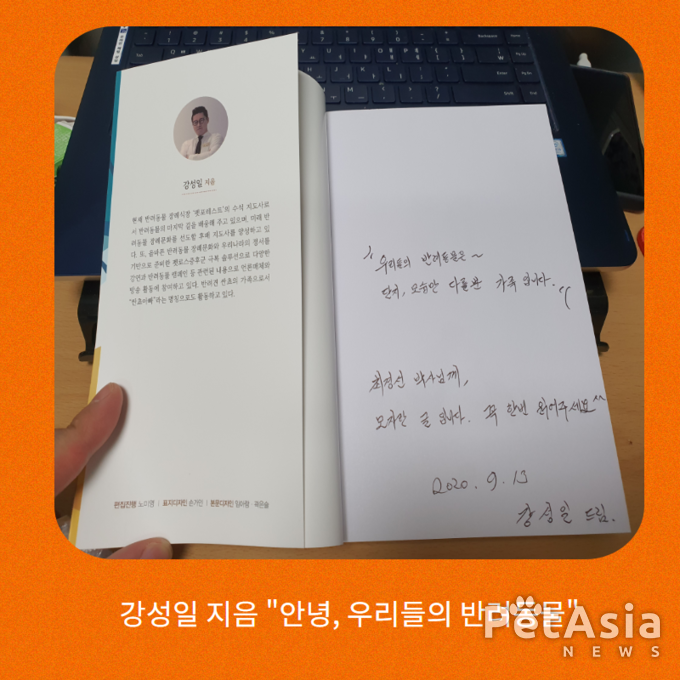 강성일 지음
현재 반려동물 장례식장 '펫포레스트'의 수석 지도사로
서 반려동물의 마지막 길을 배웅해 주고 있으며, 미래 반
려동물 장례문화를 선도할 후배 지도사를 양성하고 있
다. 또, 올바른 반려동물 장례문화와 우리나라의 정서를
기반으로 준비한 펫로스증후군 극복 솔루션으로 다양한
강연과 반려동물 캠페인 등 관련된 내용으로 언론매체와
방송 활동에 참여하고 있다. 반려견 싼쵸의 가족으로서
'싼쵸아빠'라는 명칭으로도 활동하고 있다.
편집진행 노미영 | 표지디자인 손가인 | 본문디자인 임아람 곽은슬
"우리들의 반려동물은~
단지, 모습만 다를뿐 가족 입니다."
최경선 박사님께,
모자란 글 입니다. 꼭 한번 읽어주세요^^
2020. 9. 13
강성일 드림.
강성일 지음 "안녕, 우리들의 반려동물"
PetAsia
NEWS